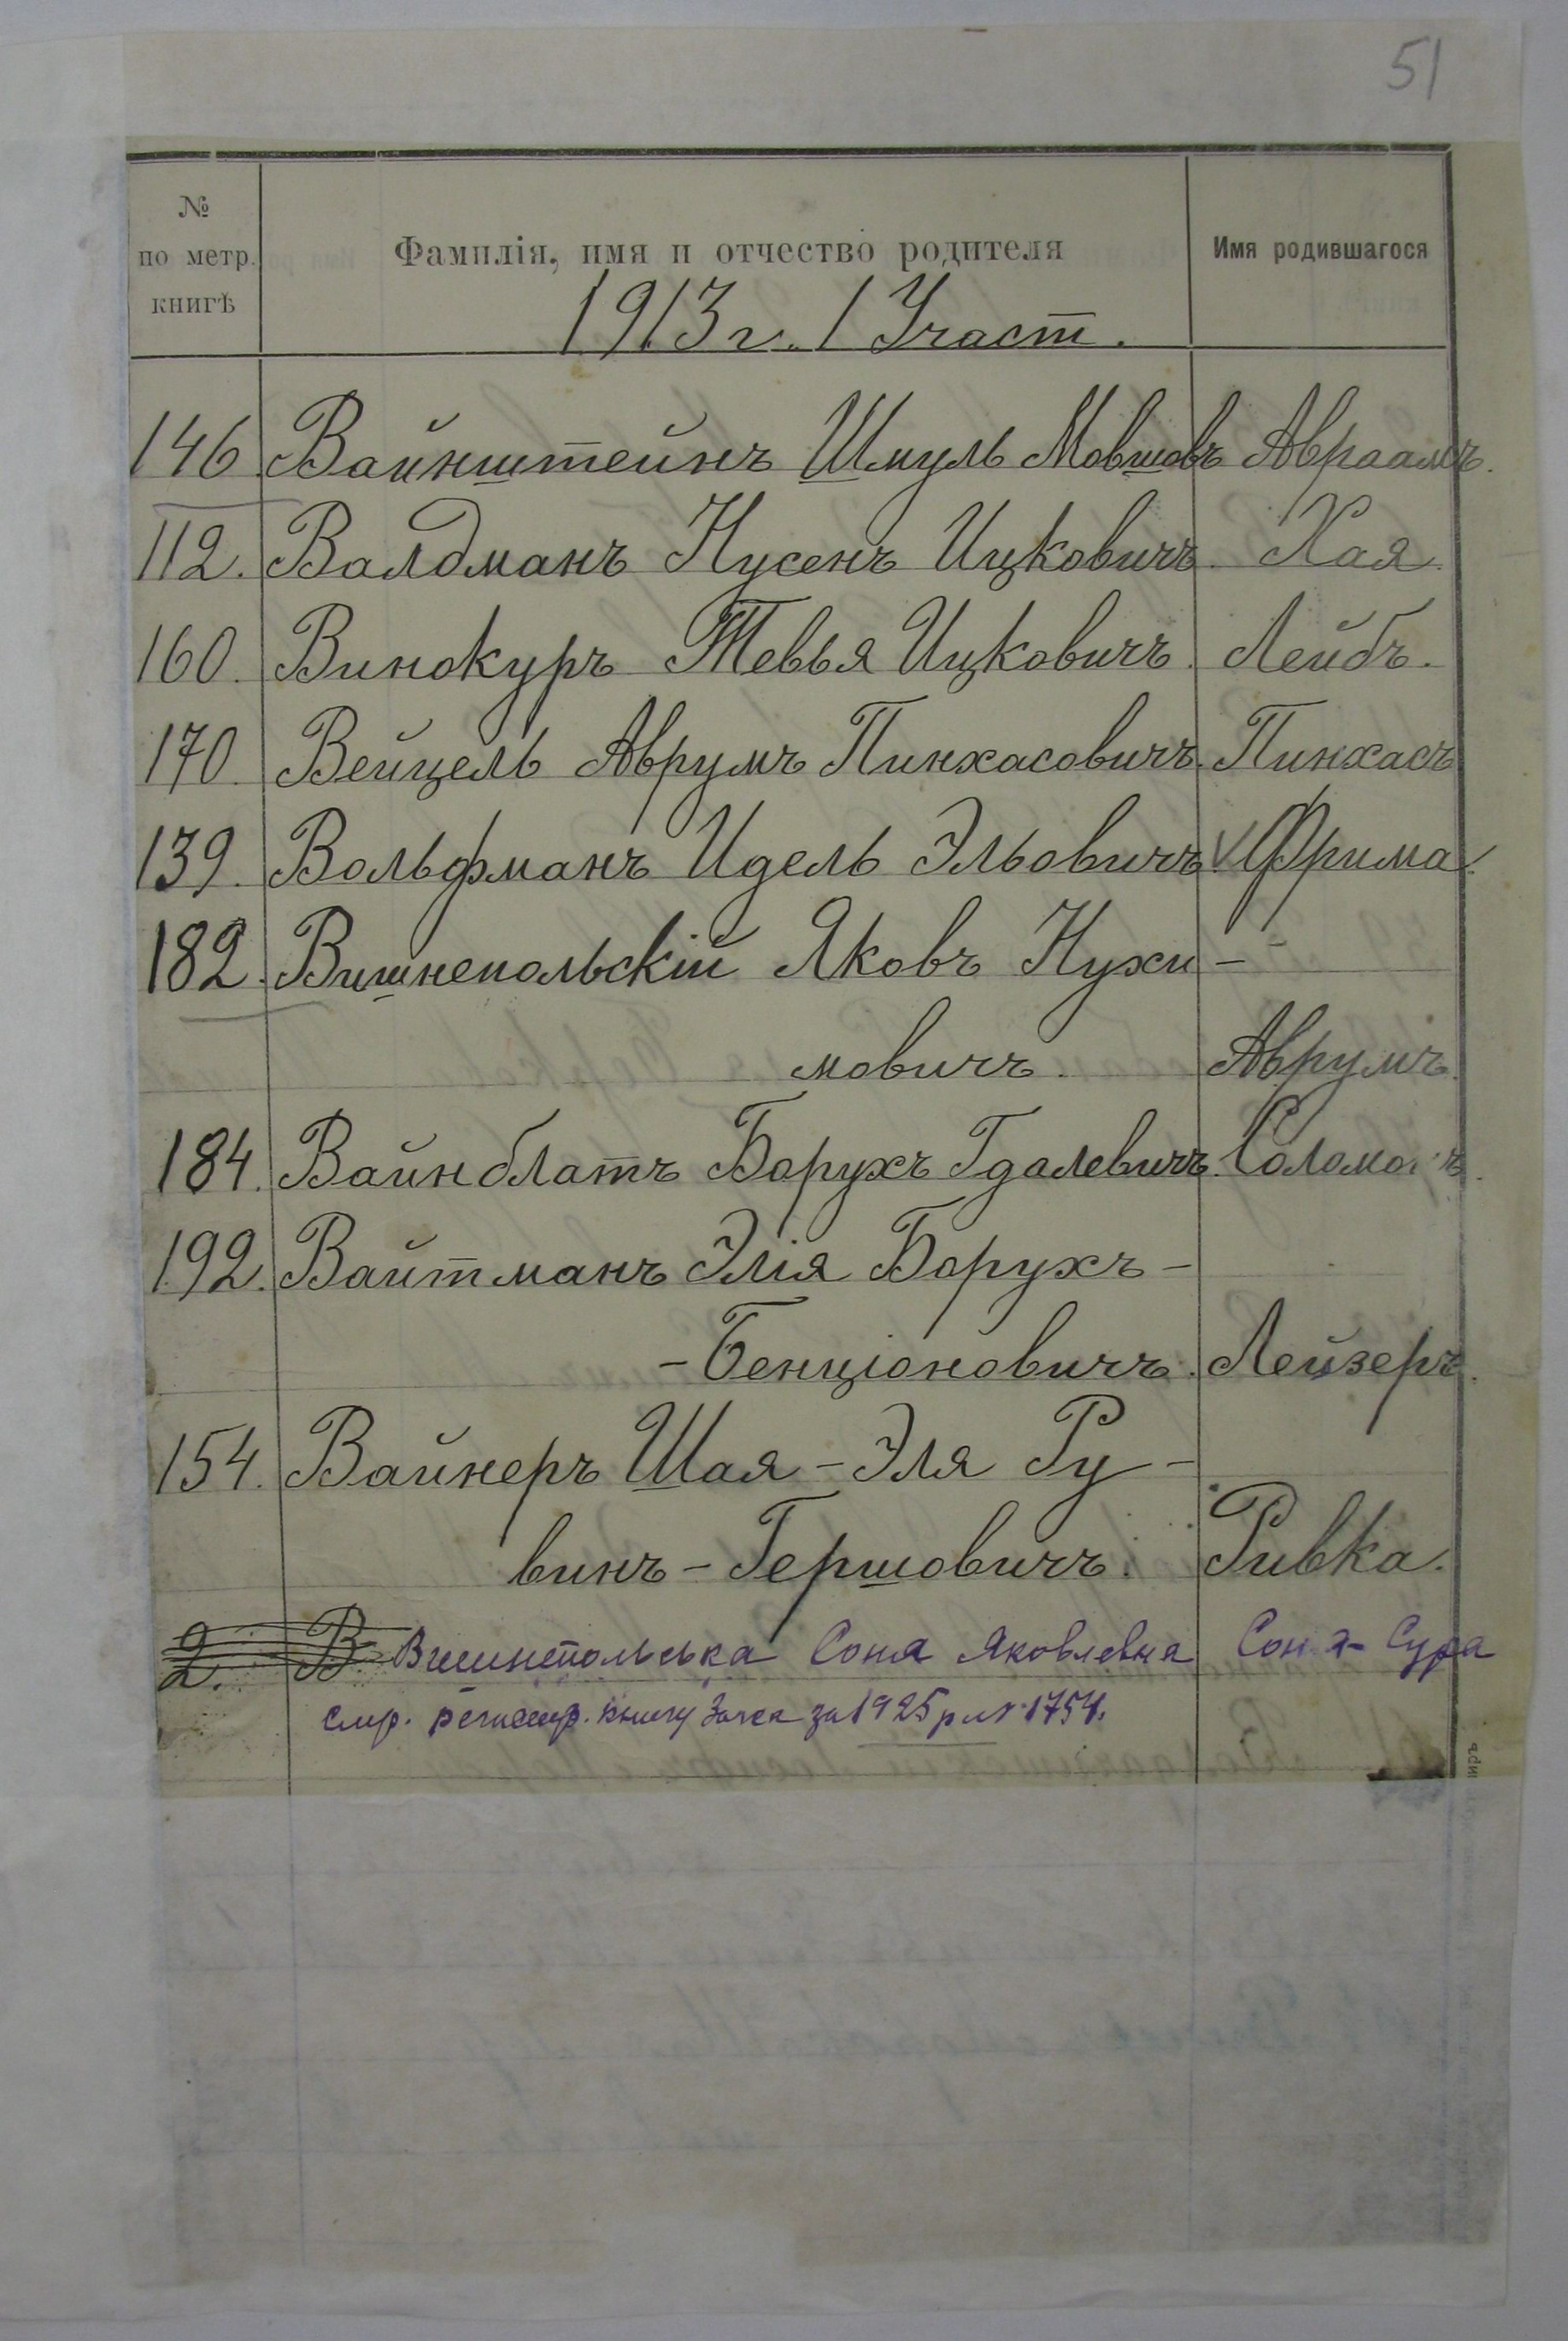 51
№
по метр.
книгѣ
Фамилія, имя и отчество родителя
Имя родившагося
1913 г. 1 Участ.
146. Вайнштейнъ Шмуль Мовшовъ Авраамъ.
112. Валдманъ Нусенъ Ицковичъ. Хая.
160. Винокуръ Тевья Ицковичъ. Лейбъ.
170. Вейцель Аврумъ Пинхасовичъ. Пинхасъ
139. Вольфманъ Идель Эльовичъ. Фрима.
182. Вишнепольскій Яковъ Нухи-
мовичъ. Аврумъ.
184. Вайнблатъ Борухъ Гдалевичъ. Соломонъ.
192. Вайтманъ Элія Борухъ-
-Бенціоновичъ. Лейзеръ.
154. Вайнеръ Шая-Эля Ру-
винъ-Гершовичъ. Ривка.
2. В Соня Яковлевна Соня-Сура
книгу за 1925 р №1754.